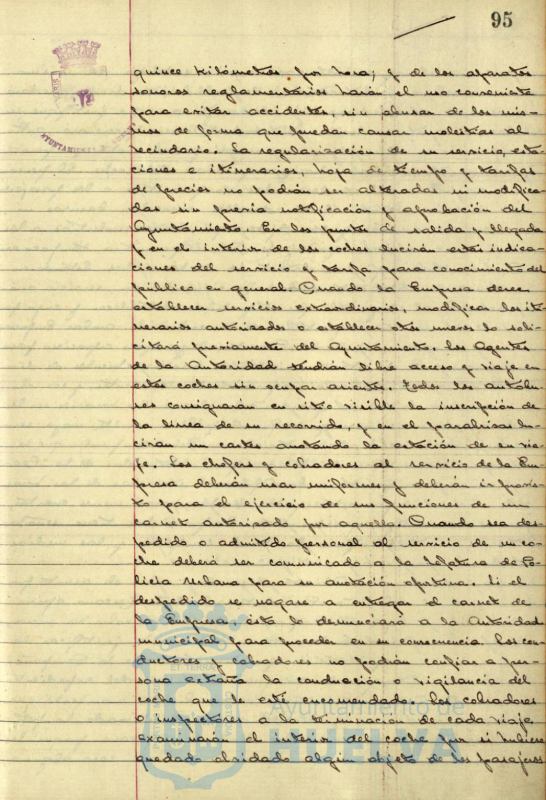 95
quince kilómetros por hora; y de los aparatos
sonoros reglamentarios harán el uso conveniente
para evitar accidentes, sin abusar de los mis-
mos de forma que puedan causar molestias al
vecindario. La regularización de su servicio, esta-
ciones e itinerarios, hoja de tiempo y tarifas
de precios no podrán ser alteradas ni modifica-
das sin previa notificación y aprobación del
Ayuntamiento. En los puntos de salida y llegada
y en el interior de los coches lucirán estas indica-
ciones del servicio y tarifa para conocimiento del
público en general. Cuando la Empresa desee
establecer servicios extraordinarios, modificar los iti-
nerarios autorizados o establecer otros nuevos lo soli-
citará previamente del Ayuntamiento. Los Agentes
de la Autoridad tendrán libre acceso y viaje en
estos coches sin ocupar asientos. Todos los autobu-
ses consignarán en sitio visible la inscripción de
la línea de su recorrido, y en el parabrisas lu-
cirán un cartel anotando la estación de su via-
je. Los chófers y cobradores al servicio de la Em-
presa deberán usar uniformes y deberán ir provis-
to para el ejercicio de sus funciones de un
carnet autorizado por aquella. Cuando sea des-
pedido o admitido personal al servicio de un co-
che deberá ser comunicado a la Jefatura de Po-
licía Urbana para su anotación oportuna. Si el
despedido se negase a entregar el carnet de
la Empresa, ésta lo denunciará a la Autoridad
municipal para proceder en su consecuencia. Los con-
ductores y cobradores no podrán confiar a per-
sona extraña la conducción o vigilancia del
coche que le esté encomendado. Los cobradores
o inspectores a la terminación de cada viaje,
examinarán el interior del coche por si hubiese
quedado olvidado algún objeto de los pasajeros
Ayuntamiento de
HUELVA